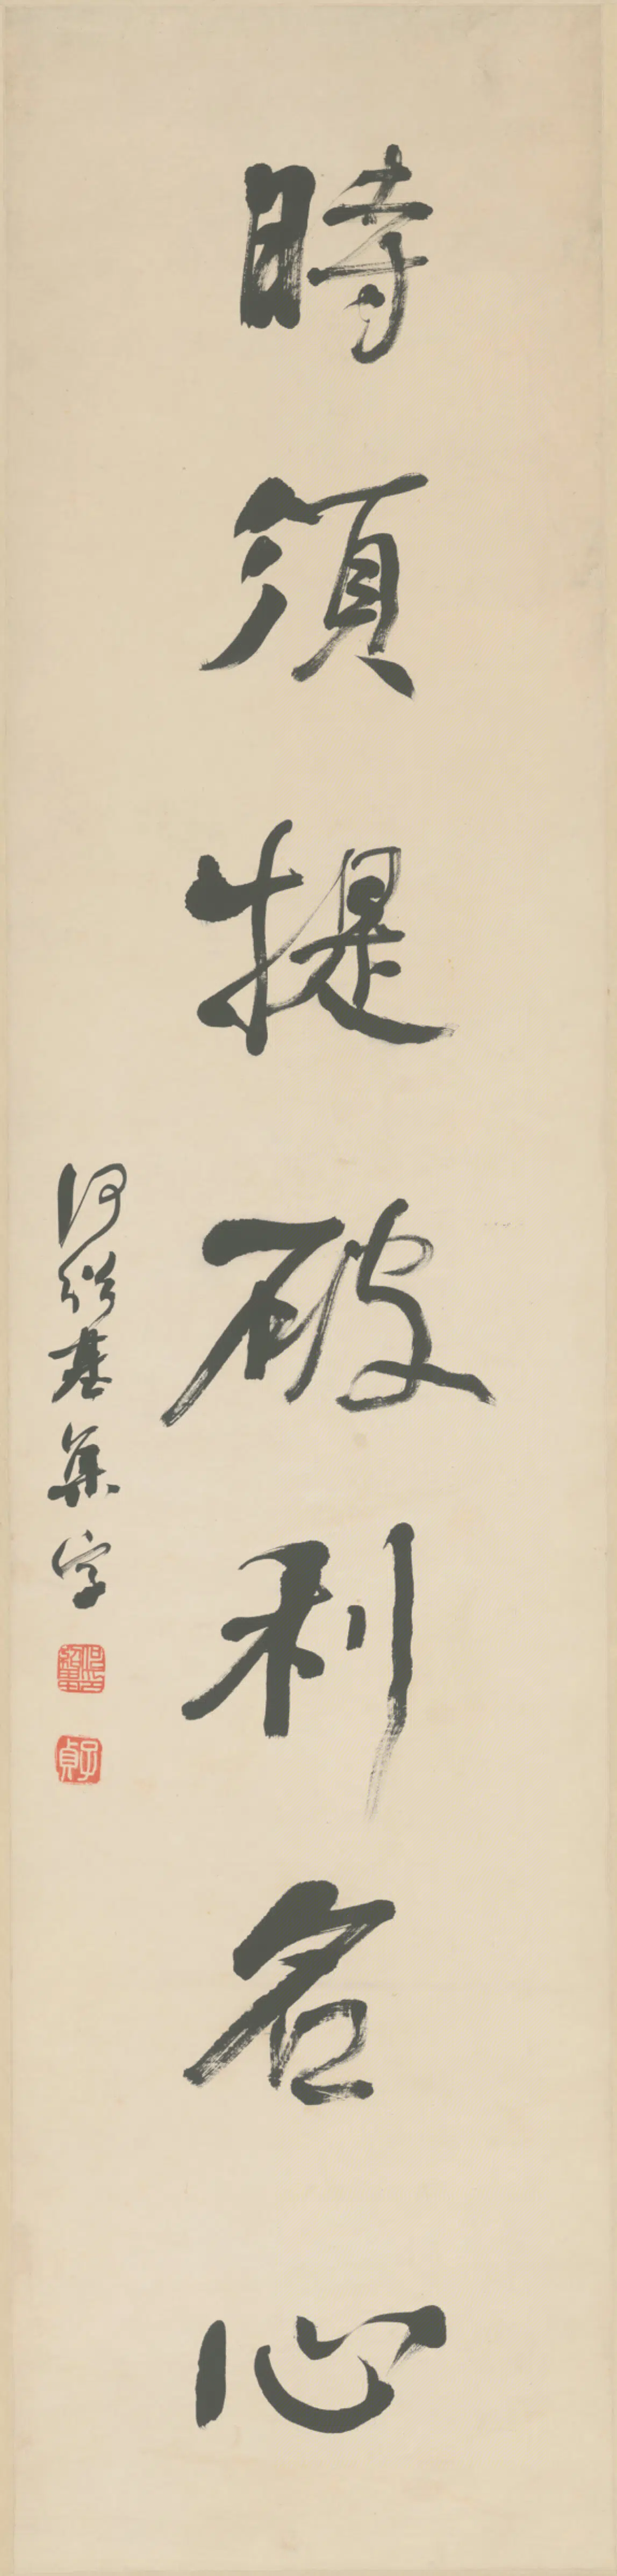 時須提破利名心
何紹基集字
子貞